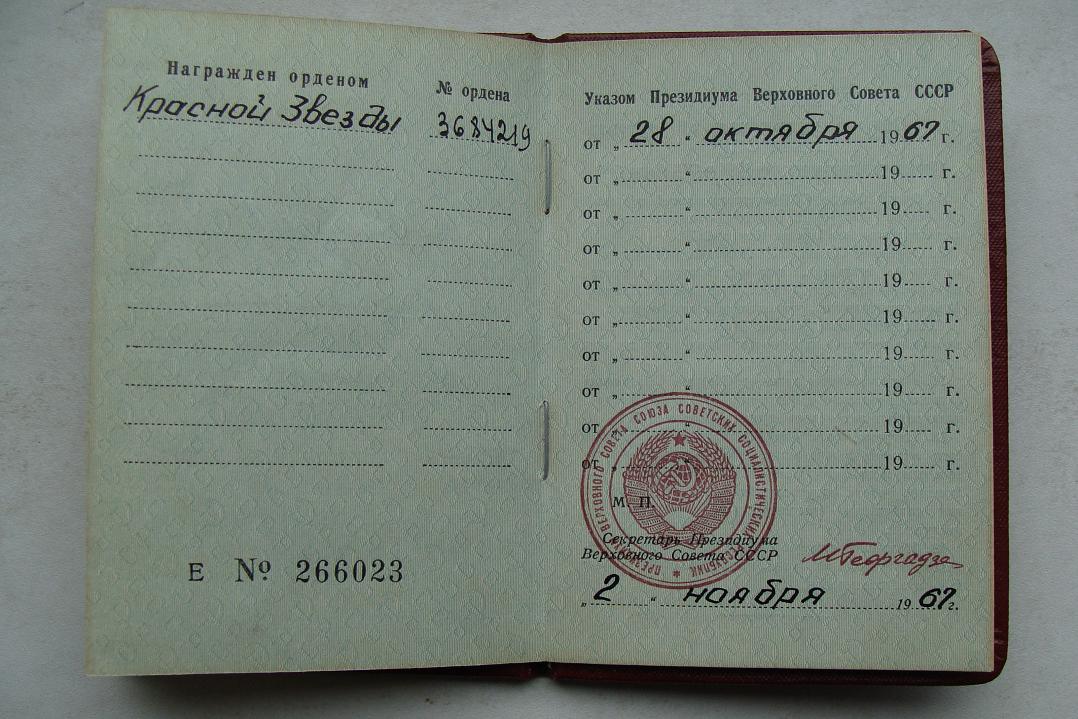 Награжден орденом
№ ордена
Красной Звезды
3684219
Е № 266023
Указом Президиума Верховного Совета СССР
от „ 28 “ октября 1967 г.
от „ “ 19 г.
от „ “ 19 г.
от „ “ 19 г.
от „ “ 19 г.
от „ “ 19 г.
от „ “ 19 г.
от „ “ 19 г.
от „ “ 19 г.
от „ “ 19 г.
ПРЕЗИДИУМ ВЕРХОВНОГО СОВЕТА СОЮЗА СОВЕТСКИХ СОЦИАЛИСТИЧЕСКИХ РЕСПУБЛИК
М. П.
Секретарь Президиума
Верховного Совета СССР
МГеоргадзе
„ 2 “ ноября 1967 г.